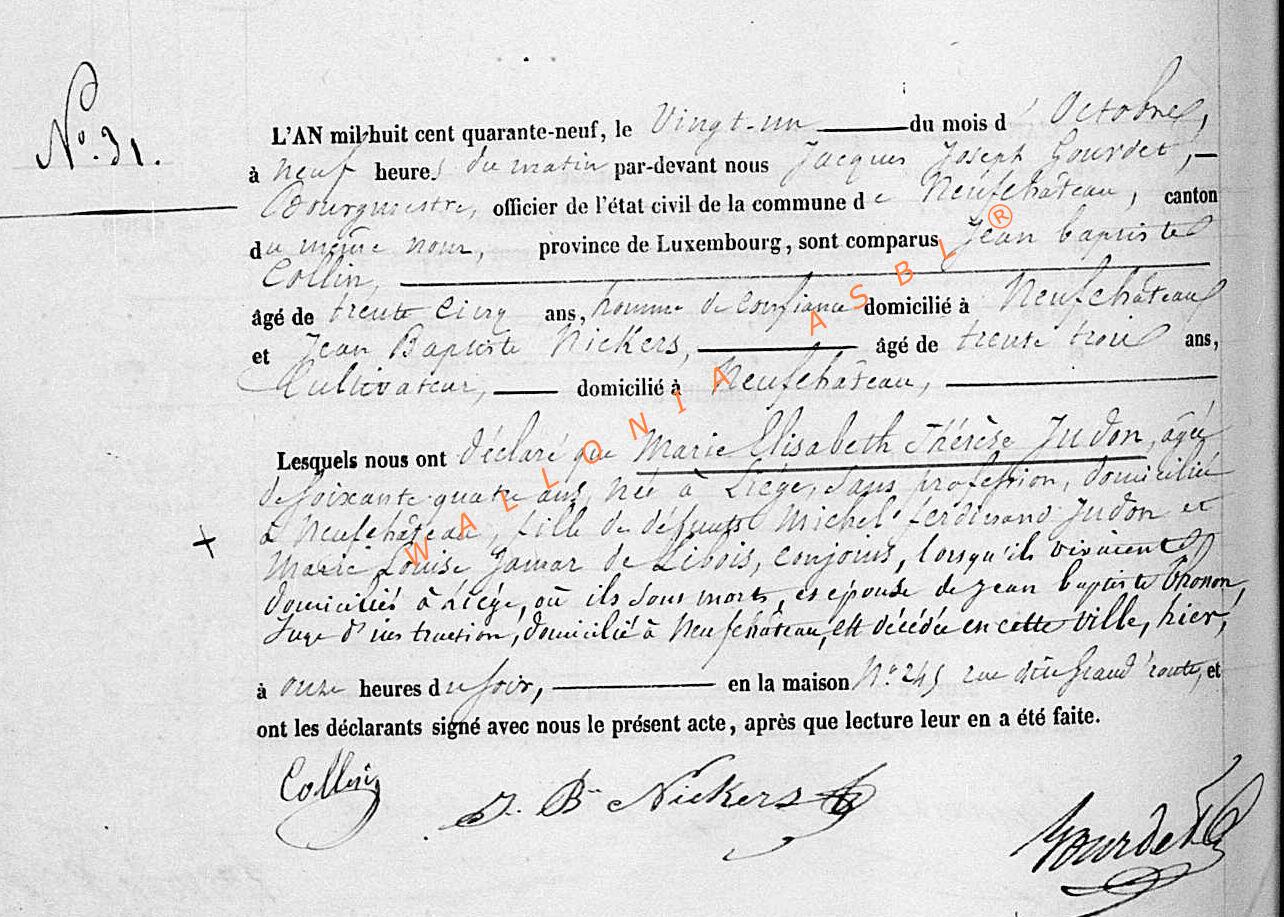 No. 31.
L'AN mil huit cent quarante-neuf, le Vingt-un du mois d'Octobre,
à neuf heures du matin par-devant nous Jacques Joseph Gourdet,
Bourgmestre, officier de l'état civil de la commune de Neufchâteau, canton
du même nom, province de Luxembourg, sont comparus Jean baptiste
Collin,
âgé de trente cinq ans, homme de confiance domicilié à Neufchâteau
et Jean Baptiste Nickers, âgé de trente trois ans,
Cultivateur, domicilié à Neufchâteau,
Lesquels nous ont déclaré que Marie Elisabeth Thérèse Judon, âgée
de soixante-quatre ans, née à Liége, sans profession, domiciliée
à Neufchâteau, fille de défunts Michel Ferdinand Judon et
Marie Louise Jamar de Libois, conjoins, lorsqu'ils vivaient
domiciliés à Liége, où ils sont morts, et épouse de jean baptiste thonon,
Juge d'instruction, domicilié à Neufchâteau, est décédée en cette ville, hier,
à onze heures du soir, en la maison No 245 rue dite Grand'route, et
ont les déclarants signé avec nous le présent acte, après que lecture leur en a été faite.
Collin
J. Bte Nickers
Gourdet
WALLONIA ASBL ®